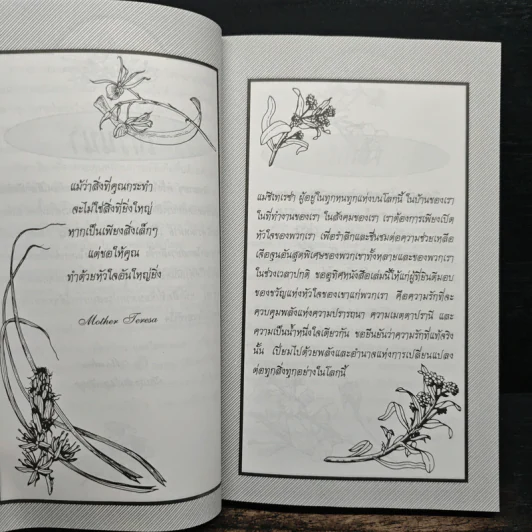 แม้ว่าสิ่งที่คุณกระทำ
จะไม่ใช่สิ่งที่ยิ่งใหญ่
หากเป็นเพียงสิ่งเล็กๆ
แต่ขอให้คุณ
ทำด้วยหัวใจอันใหญ่ยิ่ง
Mother Teresa
แม่ชีเทเรซ่า ผู้อยู่ในทุกหนทุกแห่งบนโลกนี้ ในบ้านของเรา
ในที่ทำงานของเรา ในสังคมของเรา เราต้องการเพียงเปิด
หัวใจของพวกเรา เพื่อรำลึกและชื่นชมต่อความช่วยเหลือ
เจือจุนอันสุดพิเศษของพวกเขาทั้งหลายและของพวกเรา
ในช่วงเวลาปกติ ขออุทิศหนังสือเล่มนี้ให้แก่ผู้ที่ยินดีมอบ
ของขวัญแห่งหัวใจของเขาแก่พวกเรา คือความรักที่จะ
ควบคุมพลังแห่งความปรารถนา ความเมตตาปรานี และ
ความเป็นน้ำหนึ่งใจเดียวกัน ขอยืนยันว่าความรักที่แท้จริง
นั้น เปี่ยมไปด้วยพลังและอำนาจแห่งการเปลี่ยนแปลง
ต่อทุกสิ่งทุกอย่างในโลกนี้